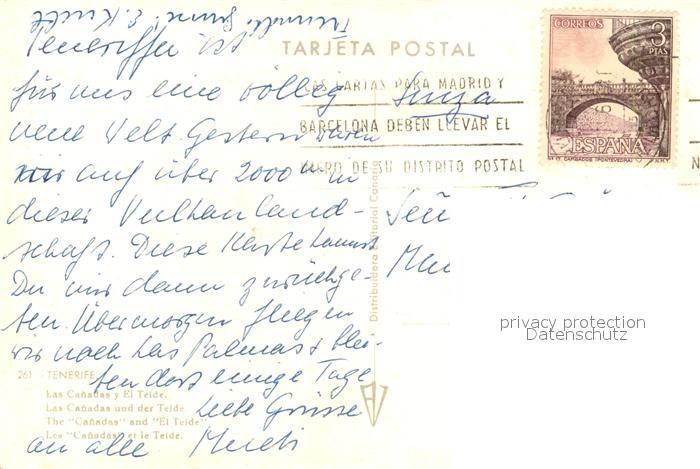 TARJETA POSTAL
Teneriffa ist
für uns eine völlig
neue Welt. Gestern waren
wir auf über 2000 m in
dieser Vulkanland-
schaft. Diese Karte kannst
Du mir dann zurückge-
ben. Übermorgen fliegen
wir nach Las Palmas + blei-
ben dort einige Tage
Liebe Grüsse
an alle
CORREOS
3
PTAS
ESPAÑA
CARTAS PARA MADRID Y
BARCELONA DEBEN LLEVAR EL
DE SU DISTRITO POSTAL
Distribuidora Editorial
261 - TENERIFE
Las Cañadas y El Teide.
Las Cañadas und der Teide.
The "Cañadas" and "El Teide"
Les "Cañadas" et le Teide.
privacy protection
Datenschutz